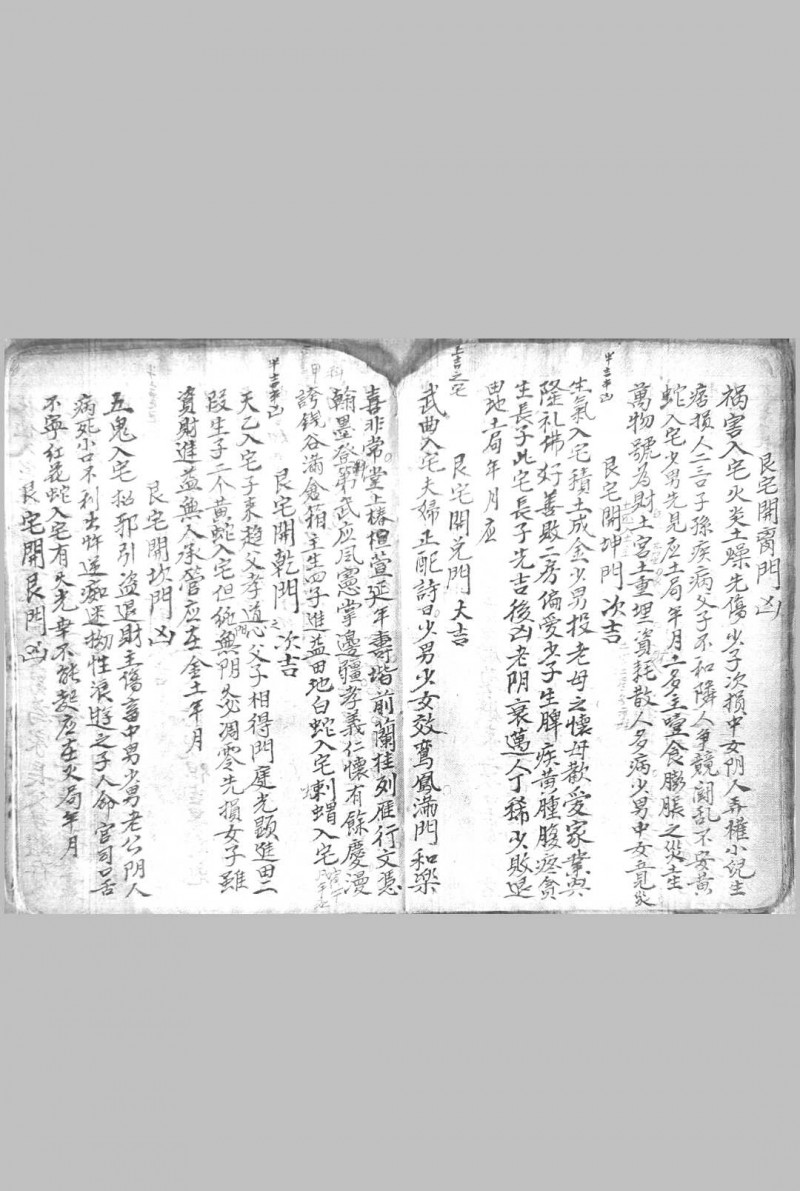 艮宅開离門凶
禍害入宅火炎土燥先傷少子次損中女阴人弄權小兒生
痞損人二三口子孫疾病父子不和隣人爭競闘乱不安黃
蛇入宅少男先見应土局年月土多主噎食膨脹之災土
萬物號為財土宮土重埋資耗散人多病少男中女
艮宅開坤門 次吉
半吉半凶
生氣入宅積土成金少男投老母之懷母歡愛家業興
隆礼佛好善敗二房偏愛少子生脾疾黃腫腹疼貪
生長子此宅長子先吉後凶老阴衰邁人丁稀少敗退
田地土局年月应
艮宅開兌門 大吉
上吉之宅
武曲入宅夫婦正配詩曰少男少女效鸞鳳滿門和樂
喜非常堂上椿楦萱延年壽堦前蘭桂列雁行文憑
翰墨登科第武应風憲掌邊疆孝義仁懷有餘慶漫
誇錢谷滿倉箱主生四子進益田地白蛇入宅刺蝟入宅
艮宅開乾門 次吉
半吉半凶
天乙入宅子束趋父孝道心父子相得門庭光顕進田二
段生子二个黃蛇入宅但純無阴必凋零先損女子雖
資財進益無人承管应在金土年月
艮宅開坎門凶
五鬼入宅招邪引盗退財主傷畜中男少男老公阴人
病死小口不利出忤逆痴迷拗性浪遊之子人命官司口舌
不寧紅花蛇入宅有火光幸不能起应在火局年月
艮宅開艮門凶